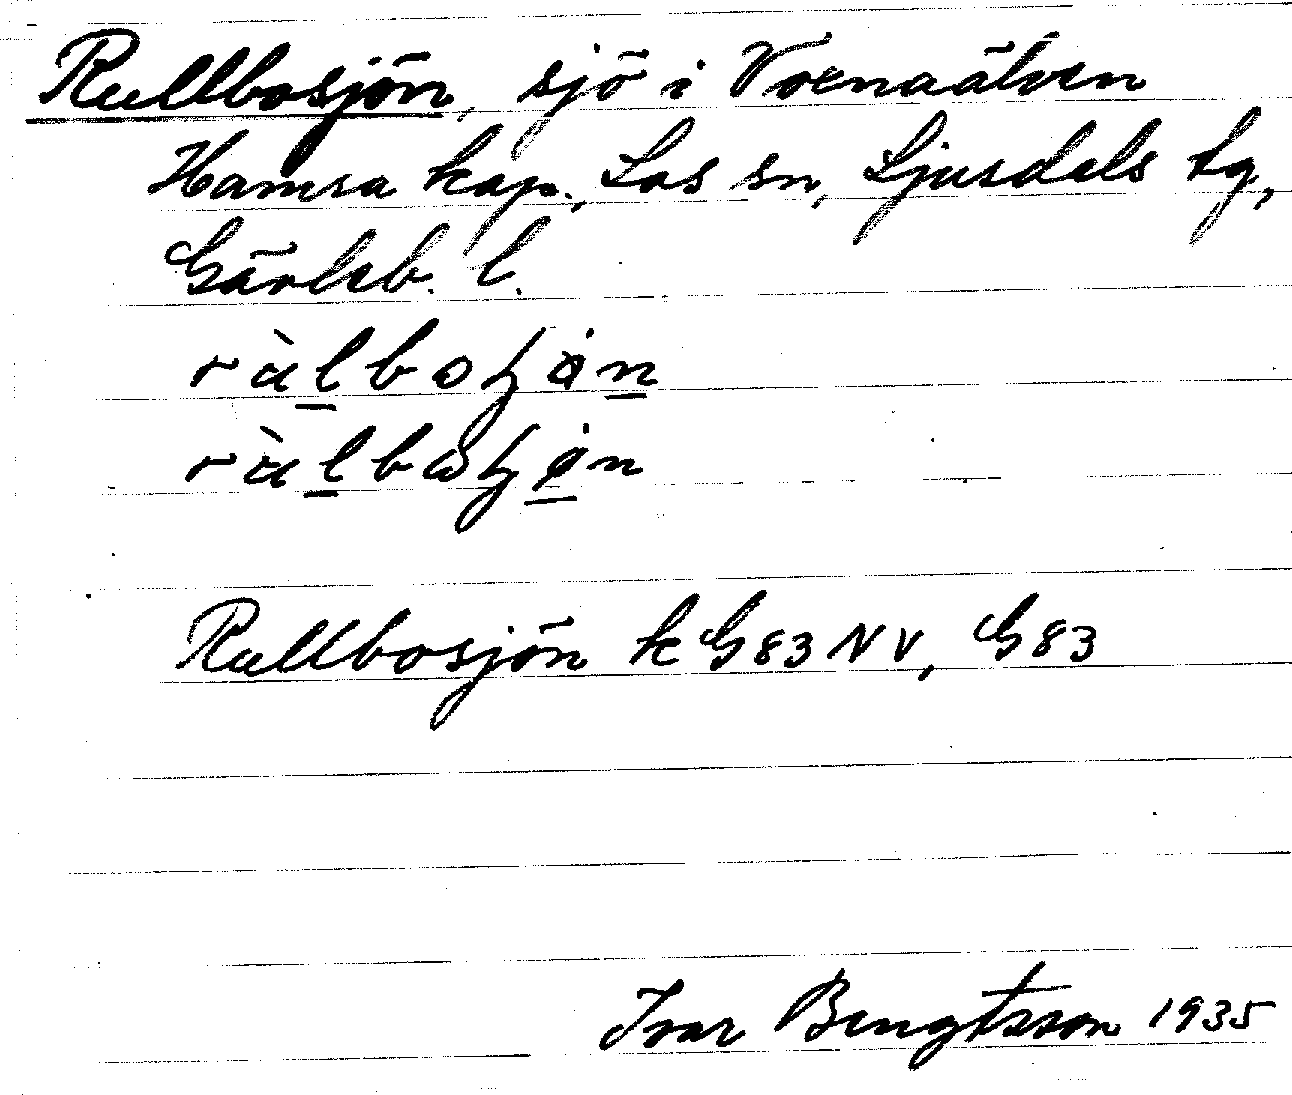 Rullbosjön, sjö i Voxnaälven
Hamra kap., Los sn, Ljusdals tg,
Gävleb. l.
Rullbosjön k G83 NV, G83
Ivar Bengtsson 1935